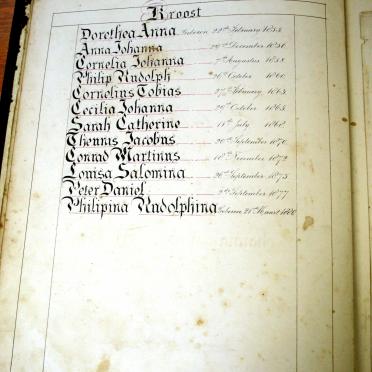 Kroost
Dorothea Anna Geboren 22ste February
Anna Johanna December
Cornelia Johanna 7de Augustus 1858
Philip Rudolph October 1860
Cornelius Tobias February 1863
Cecilia Johanna October 1865
Sarah Catherine July 1868
Thomas Jacobus September 1870
Conrad Martinus November 1872
Louisa Salomina September 1875
Peter Daniel 1877
Philipina Rudolphina Geboren Maart 1880